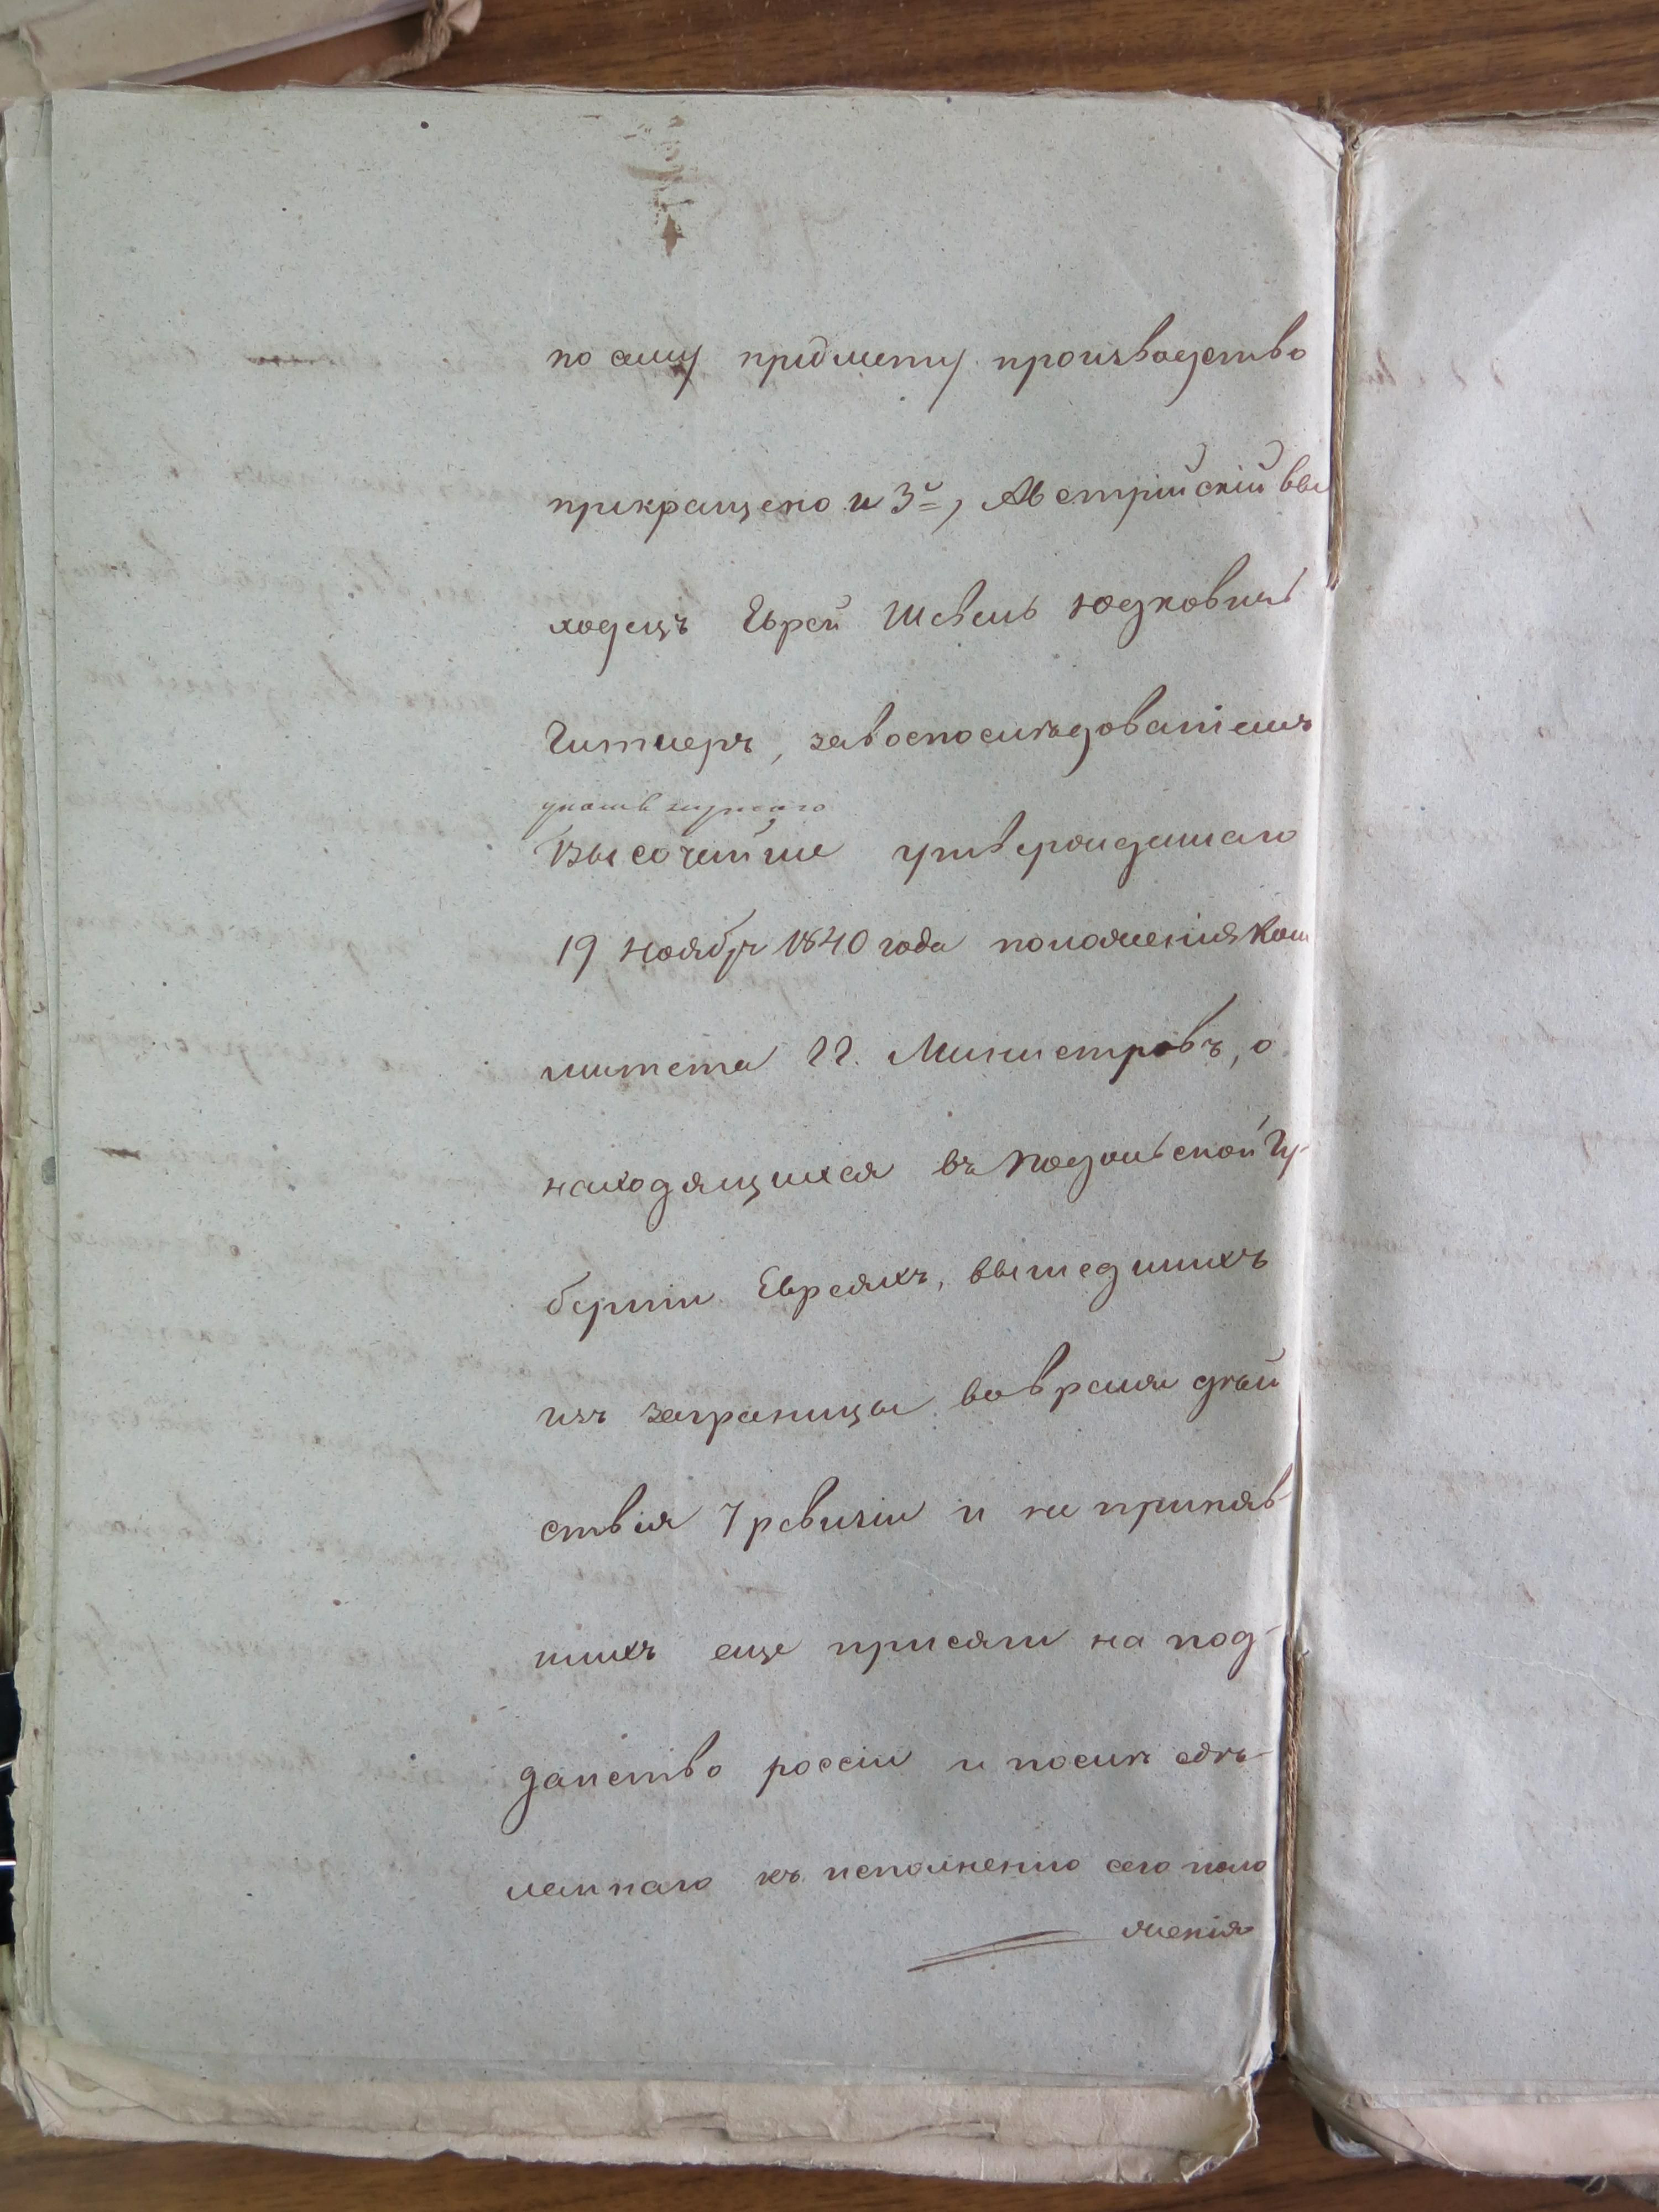 по сему придмету производство
прикращено и 3й, Австрійскій вы
ходецъ Еврей Шевель Юдковичъ
Гитлеръ, завоспоследованіемъ
Высочайше утвержденнаго
19 ноября 1840 года положенія Ком
митета ГГ. Министровъ, о
находящихся въ Подольской Гу-
берніи Евреяхъ, вышедшихъ
изъ заграницы вовремя дѣй
ствія 7 ревизіи и не приняв-
шихъ еще присяги на под-
данство россіи и после сдѣ-
леннаго къ исполненію сего поло
женія